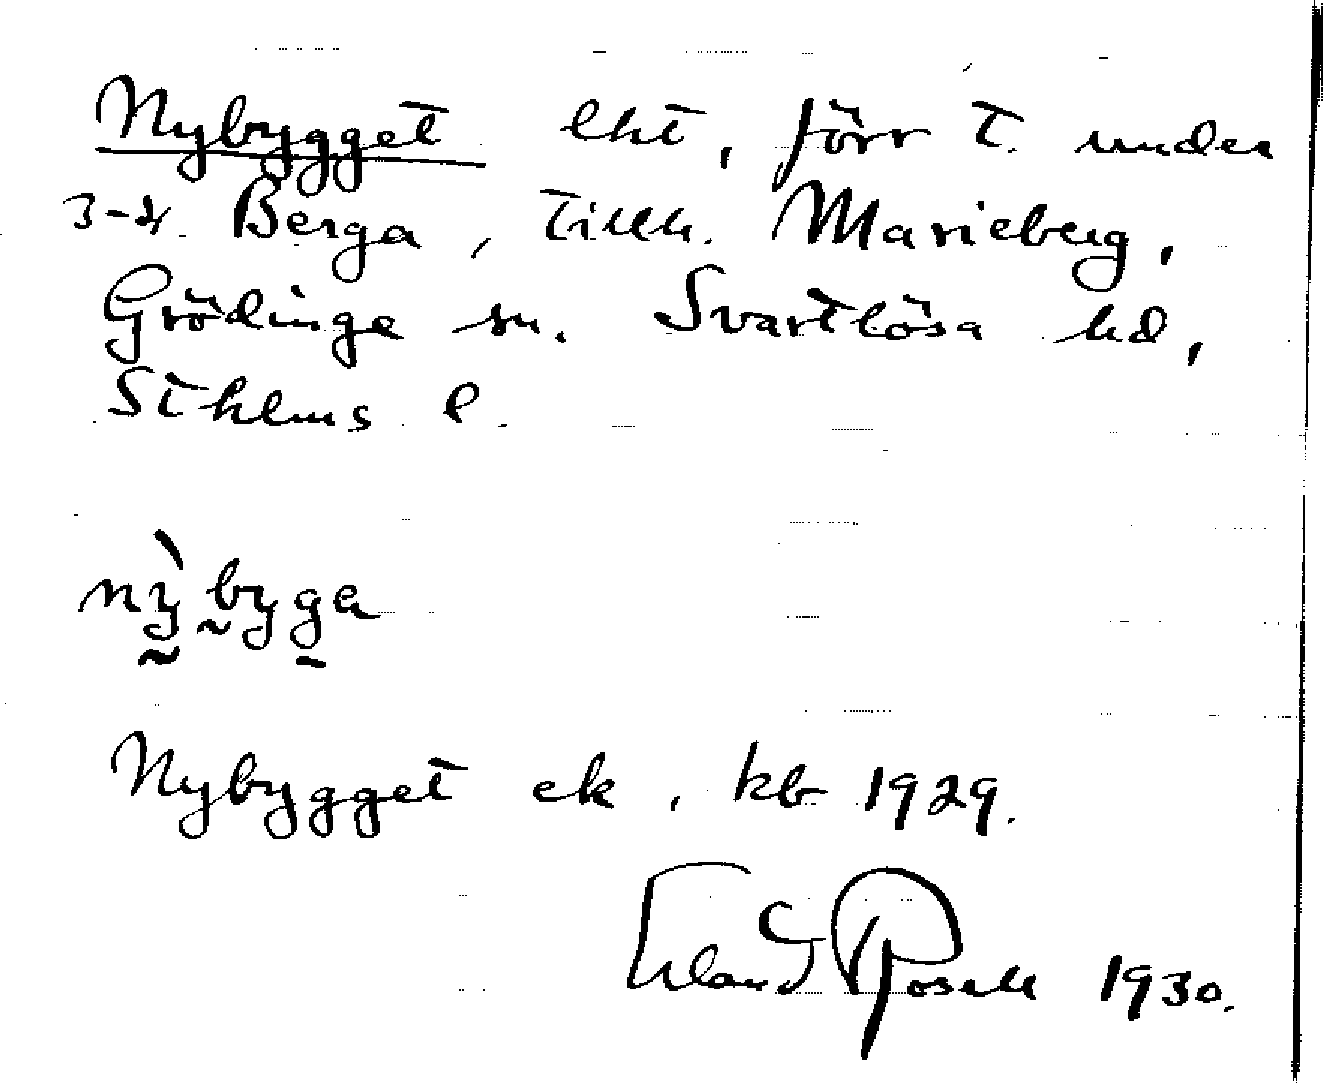 Nybygget lht, förr t. under
3-4 Berga, tillh. Marieberg,
Grödinge sn. Svartlösa hd,
Sthlms l.
nỳbyga
Nybygget ek, kb 1929.
Erland Rosell 1930.